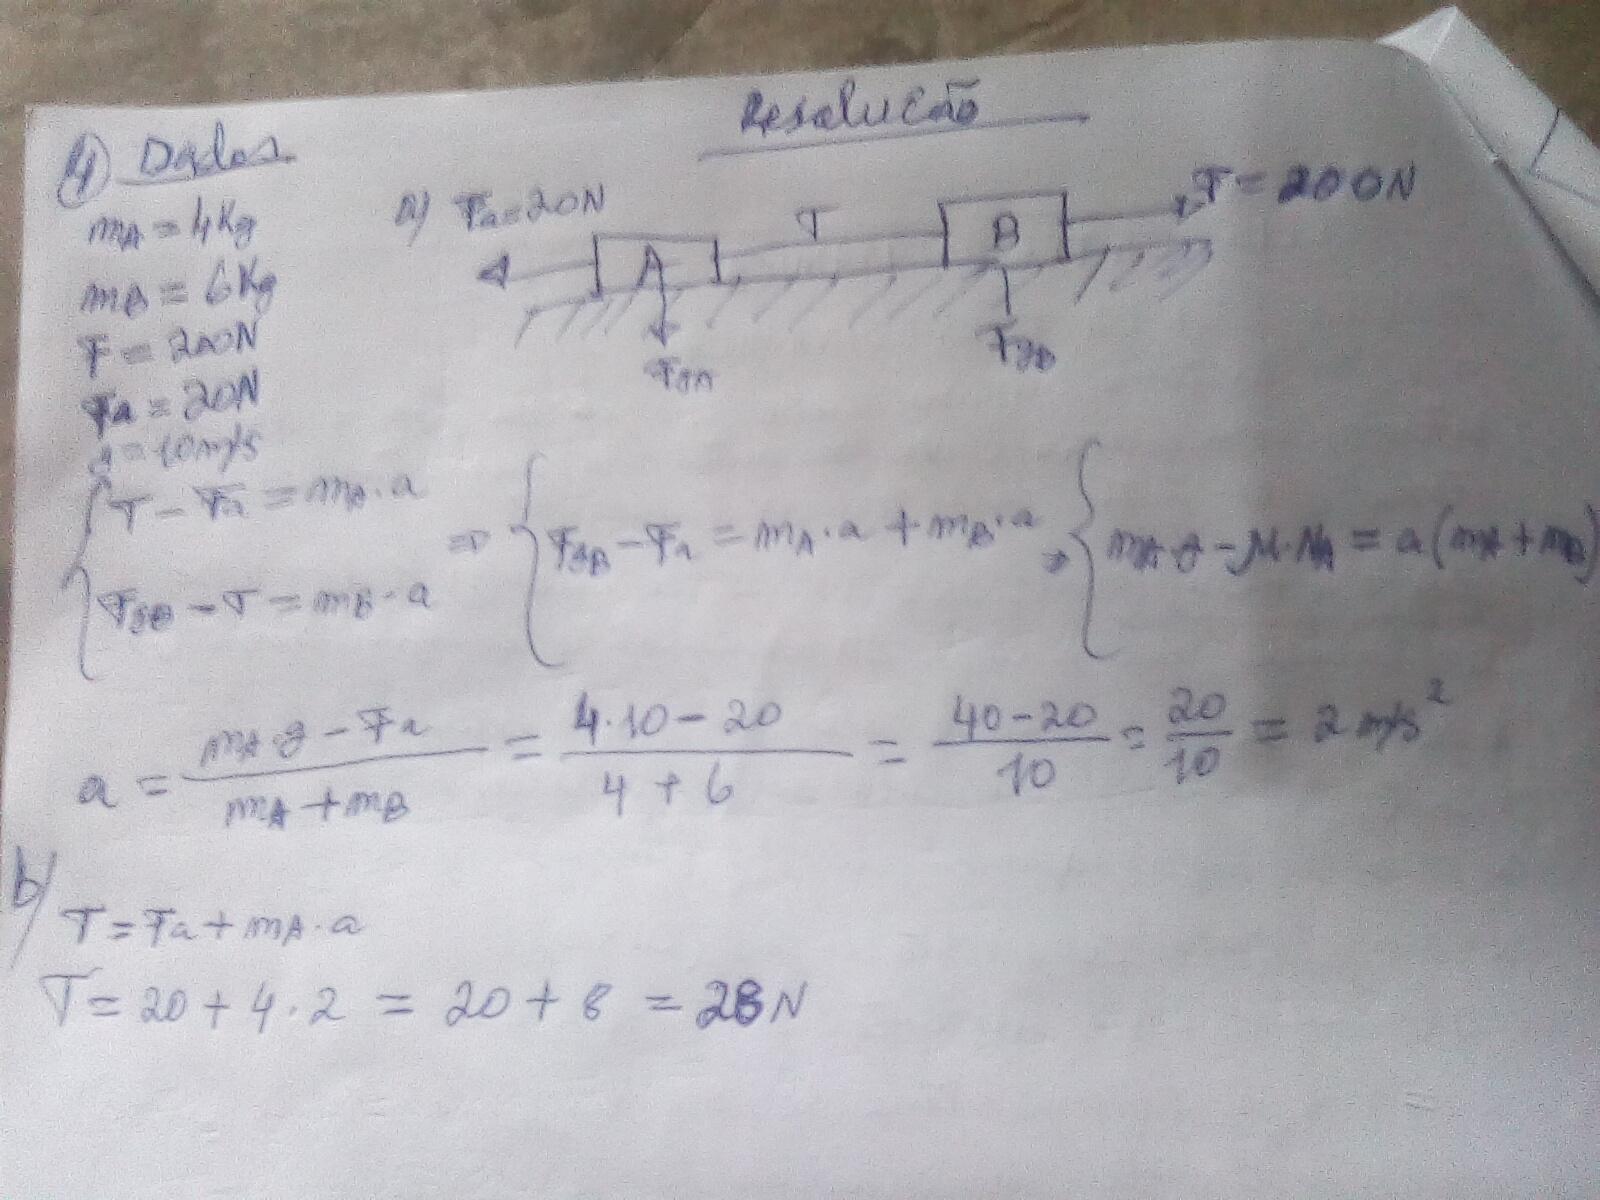 Resolucão
4) Dados
mA = 4Kg
mB = 6Kg
F = 200N
Fa = 20N
g = 10m/s
a) Fa = 20N
T
F = 200N
A
B
FgA
FgB
{ T - Fa = mA·a
FgB - T = mB·a
⇒ { FgB - Fa = mA·a + mB·a
⇒ { mA·g - μ·NA = a(mA + mB)
a = (mA·g - Fa)/(mA + mB) = (4·10 - 20)/(4 + 6) = (40-20)/10 = 20/10 = 2 m/s²
b)
T = Fa + mA·a
T = 20 + 4·2 = 20 + 8 = 28N